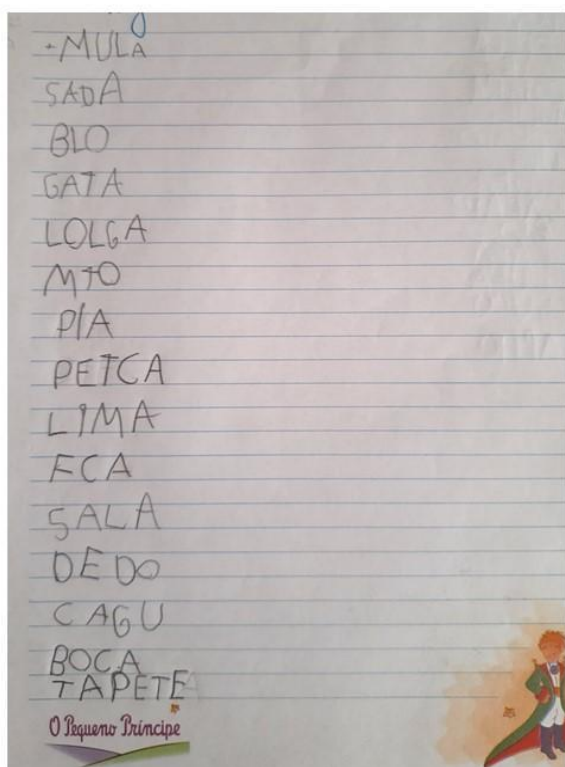 MULA
SADA
BLO
GATA
LOLGA
MTO
PIA
PETCA
LIMA
FCA
SALA
DEDO
CAGU
BOCA
TAPETE
O Pequeno Príncipe